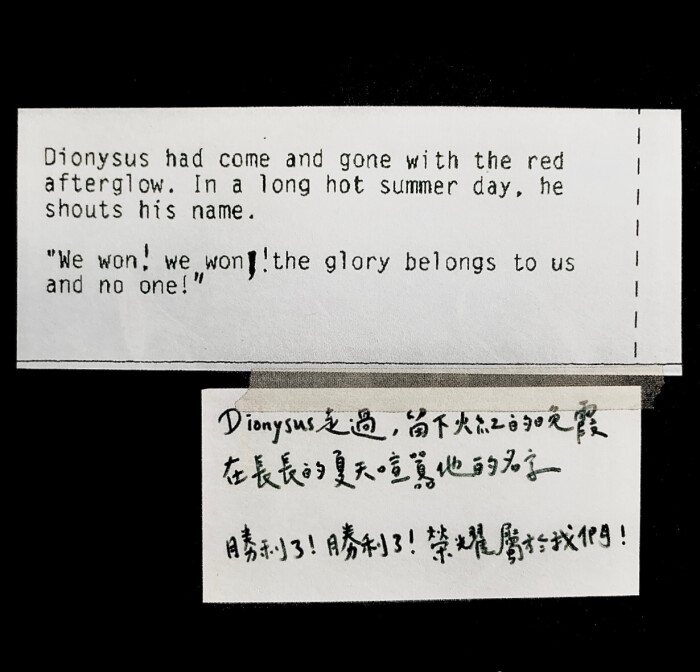 Dionysus had come and gone with the red
afterglow. In a long hot summer day, he
shouts his name.
"We won! we won,!the glory belongs to us
and no one!"
Dionysus走過,留下火紅的晚霞
在長長的夏天喧囂他的名字
勝利了!勝利了!榮耀屬於我們!